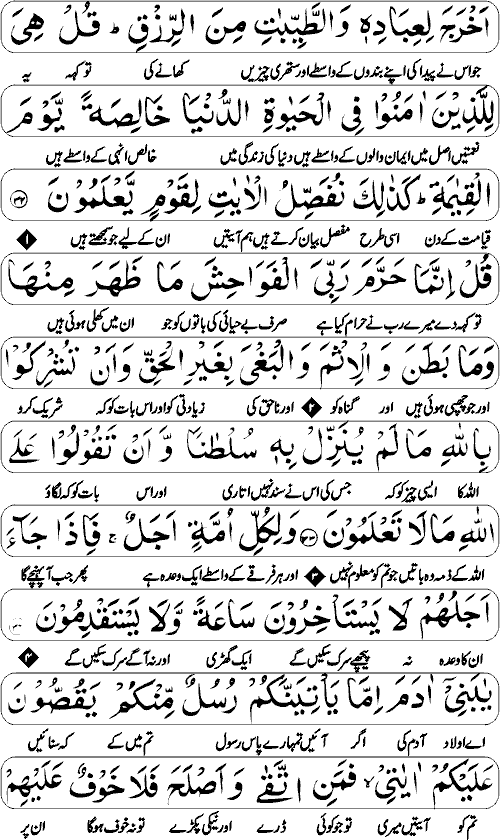 اَخْرَجَ لِعِبَادِهٖ وَالطَّيِّبٰتِ مِنَ الرِّزْقِ ؕ قُلْ هِيَ
جو اس نے پیدا کی اپنے بندوں کے واسطے اور ستھری چیزیں کھانے کی تو کہہ یہ
لِلَّذِيْنَ اٰمَنُوْا فِي الْحَيٰوةِ الدُّنْيَا خَالِصَةً يَّوْمَ
نعمتیں اصل میں ایمان والوں کے واسطے ہیں دنیا کی زندگی میں خالص انہی کے واسطے ہیں
الْقِيٰمَةِ ؕ كَذٰلِكَ نُفَصِّلُ الْاٰيٰتِ لِقَوْمٍ يَّعْلَمُوْنَ ۳۲
قیامت کے دن اسی طرح مفصل بیان کرتے ہیں ہم آیتیں ان کے لیے جو سمجھتے ہیں ۱
قُلْ اِنَّمَا حَرَّمَ رَبِّيَ الْفَوَاحِشَ مَا ظَهَرَ مِنْهَا
تو کہہ دے میرے رب نے حرام کیا ہے صرف بے حیائی کی باتوں کو جو ان میں کھلی ہوئی ہیں
وَمَا بَطَنَ وَالْاِثْمَ وَالْبَغْيَ بِغَيْرِ الْحَقِّ وَاَنْ تُشْرِكُوْا
اور جو چھپی ہوئی ہیں اور گناہ کو ۲ اور ناحق کی زیادتی کو اور اس بات کو کہ شریک کرو
بِاللّٰهِ مَا لَمْ يُنَزِّلْ بِهٖ سُلْطٰنًا وَّاَنْ تَقُوْلُوْا عَلَى
اللہ کا ایسی چیز کو کہ جس کی اس نے سند نہیں اتاری اور اس بات کو کہ لگاؤ
اللّٰهِ مَا لَا تَعْلَمُوْنَ ۳۳ وَلِكُلِّ اُمَّةٍ اَجَلٌ ۚ فَاِذَا جَآءَ
اللہ کے ذمہ وہ باتیں جو تم کو معلوم نہیں ۳ اور ہر فرقے کے واسطے ایک وعدہ ہے پھر جب آ پہنچے گا
اَجَلُهُمْ لَا يَسْتَاْخِرُوْنَ سَاعَةً وَّلَا يَسْتَقْدِمُوْنَ ۳۴
ان کا وعدہ نہ پیچھے سرک سکیں گے ایک گھڑی اور نہ آگے سرک سکیں گے ۴
يٰبَنِيْٓ اٰدَمَ اِمَّا يَاْتِيَنَّكُمْ رُسُلٌ مِّنْكُمْ يَقُصُّوْنَ
اے اولاد آدم کی اگر آئیں تمہارے پاس رسول تم میں کے کہ سنائیں
عَلَيْكُمْ اٰيٰتِيْ ۙ فَمَنِ اتَّقٰى وَاَصْلَحَ فَلَا خَوْفٌ عَلَيْهِمْ
تم کو آیتیں میری تو جو کوئی ڈرے اور نیکی پکڑے تو نہ خوف ہوگا ان پر